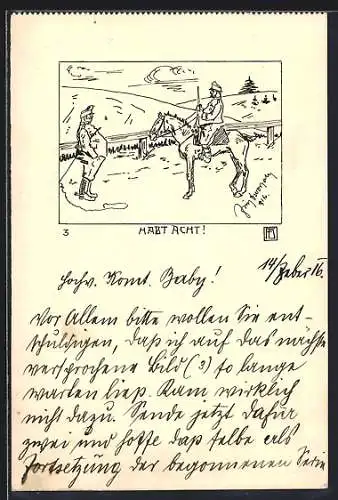 3
HABT ACHT!
916.
14/Feber 16.
Hochv. Komt. Baby!
Vor Allem bitte wollen Sie ent-
schuldigen, daß ich auf das nächste
versprochene Bild (3) so lange
warten ließ. Kam wirklich
nicht dazu. Sende jetzt dafür
zwei und hoffe daß selbe als
Fortsetzung der begonnenen Serie